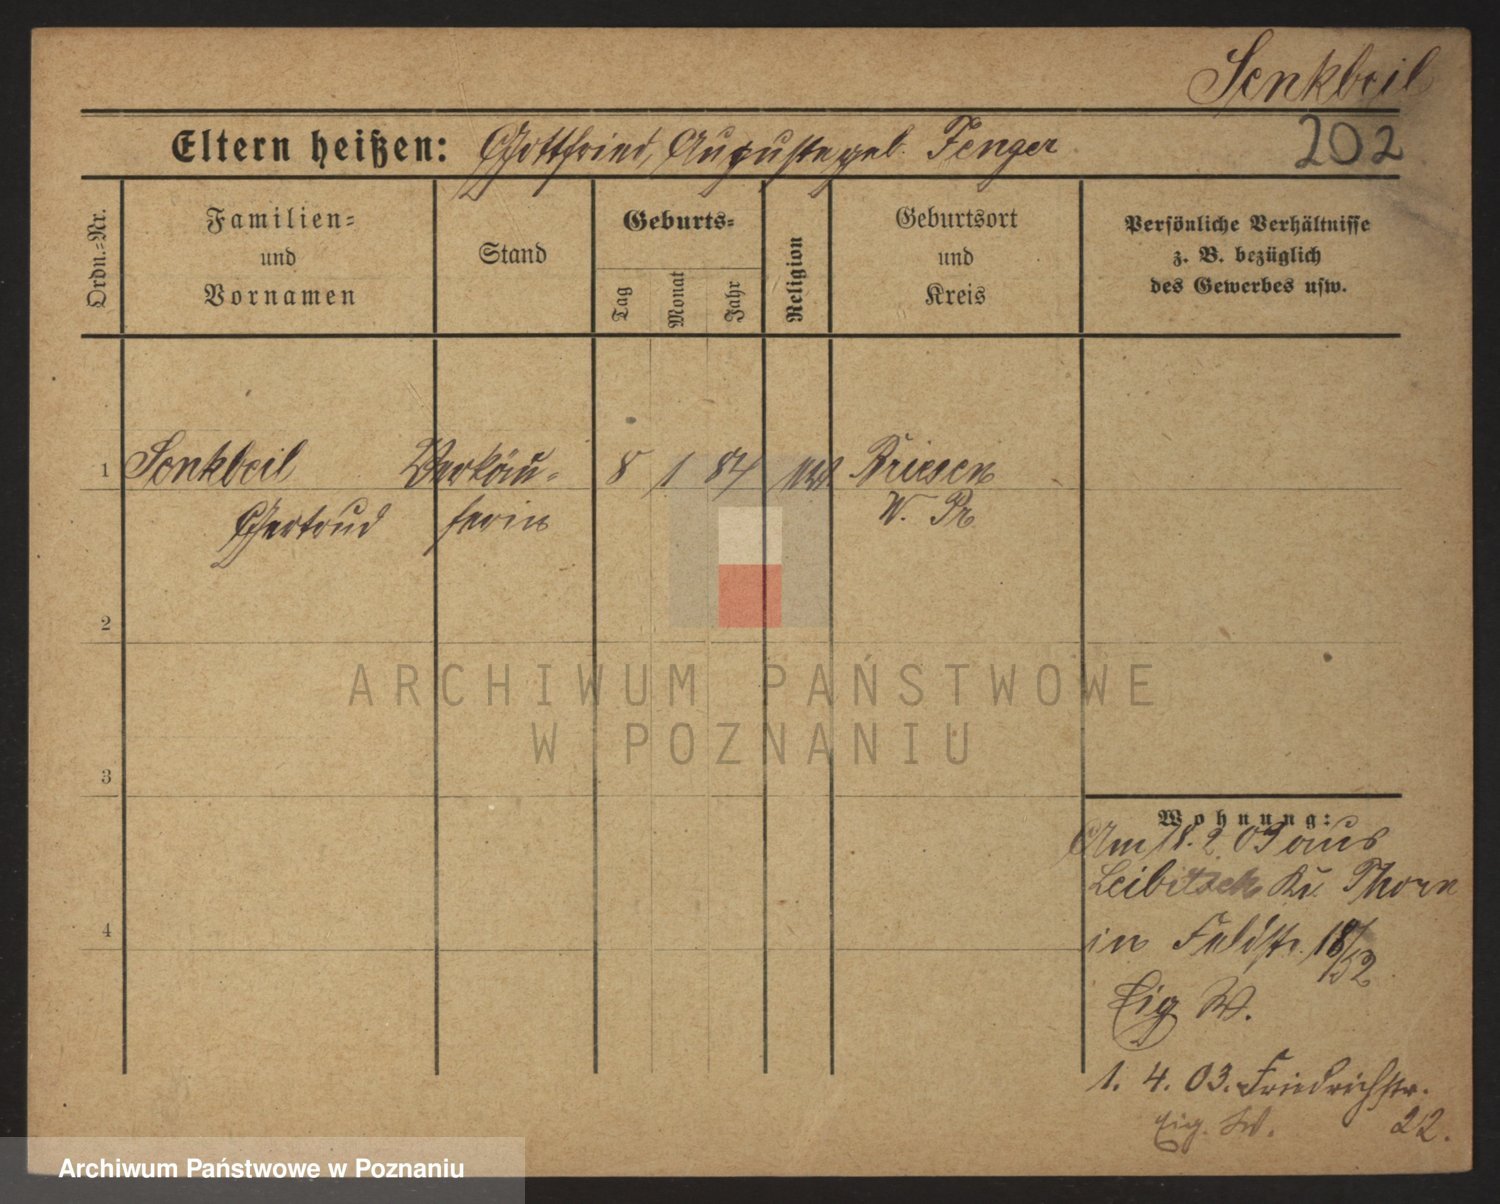 Senkbeil
Eltern heißen: Gottfried, Auguste geb. Fenger
202
Ordn.=Nr.
Familien=
und
Vornamen
Stand
Geburts=
Tag
Monat
Jahr
Religion
Geburtsort
und
Kreis
Persönliche Verhältnisse
z. B. bezüglich
des Gewerbes usw.
1 Senkbeil Verkäu= 8 1 84 Briesen
Gertrud ferin W. Pr
2
3
4
Wohnung:
Am 18. 2 03 aus
Leibitsch Kr. Thorn
in Feldstr. 18/52
Eig W.
1. 4. 03. Friedrichstr.
Eig. W. 22.
ARCHIWUM PAŃSTWOWE
W POZNANIU
Archiwum Państwowe w Poznaniu